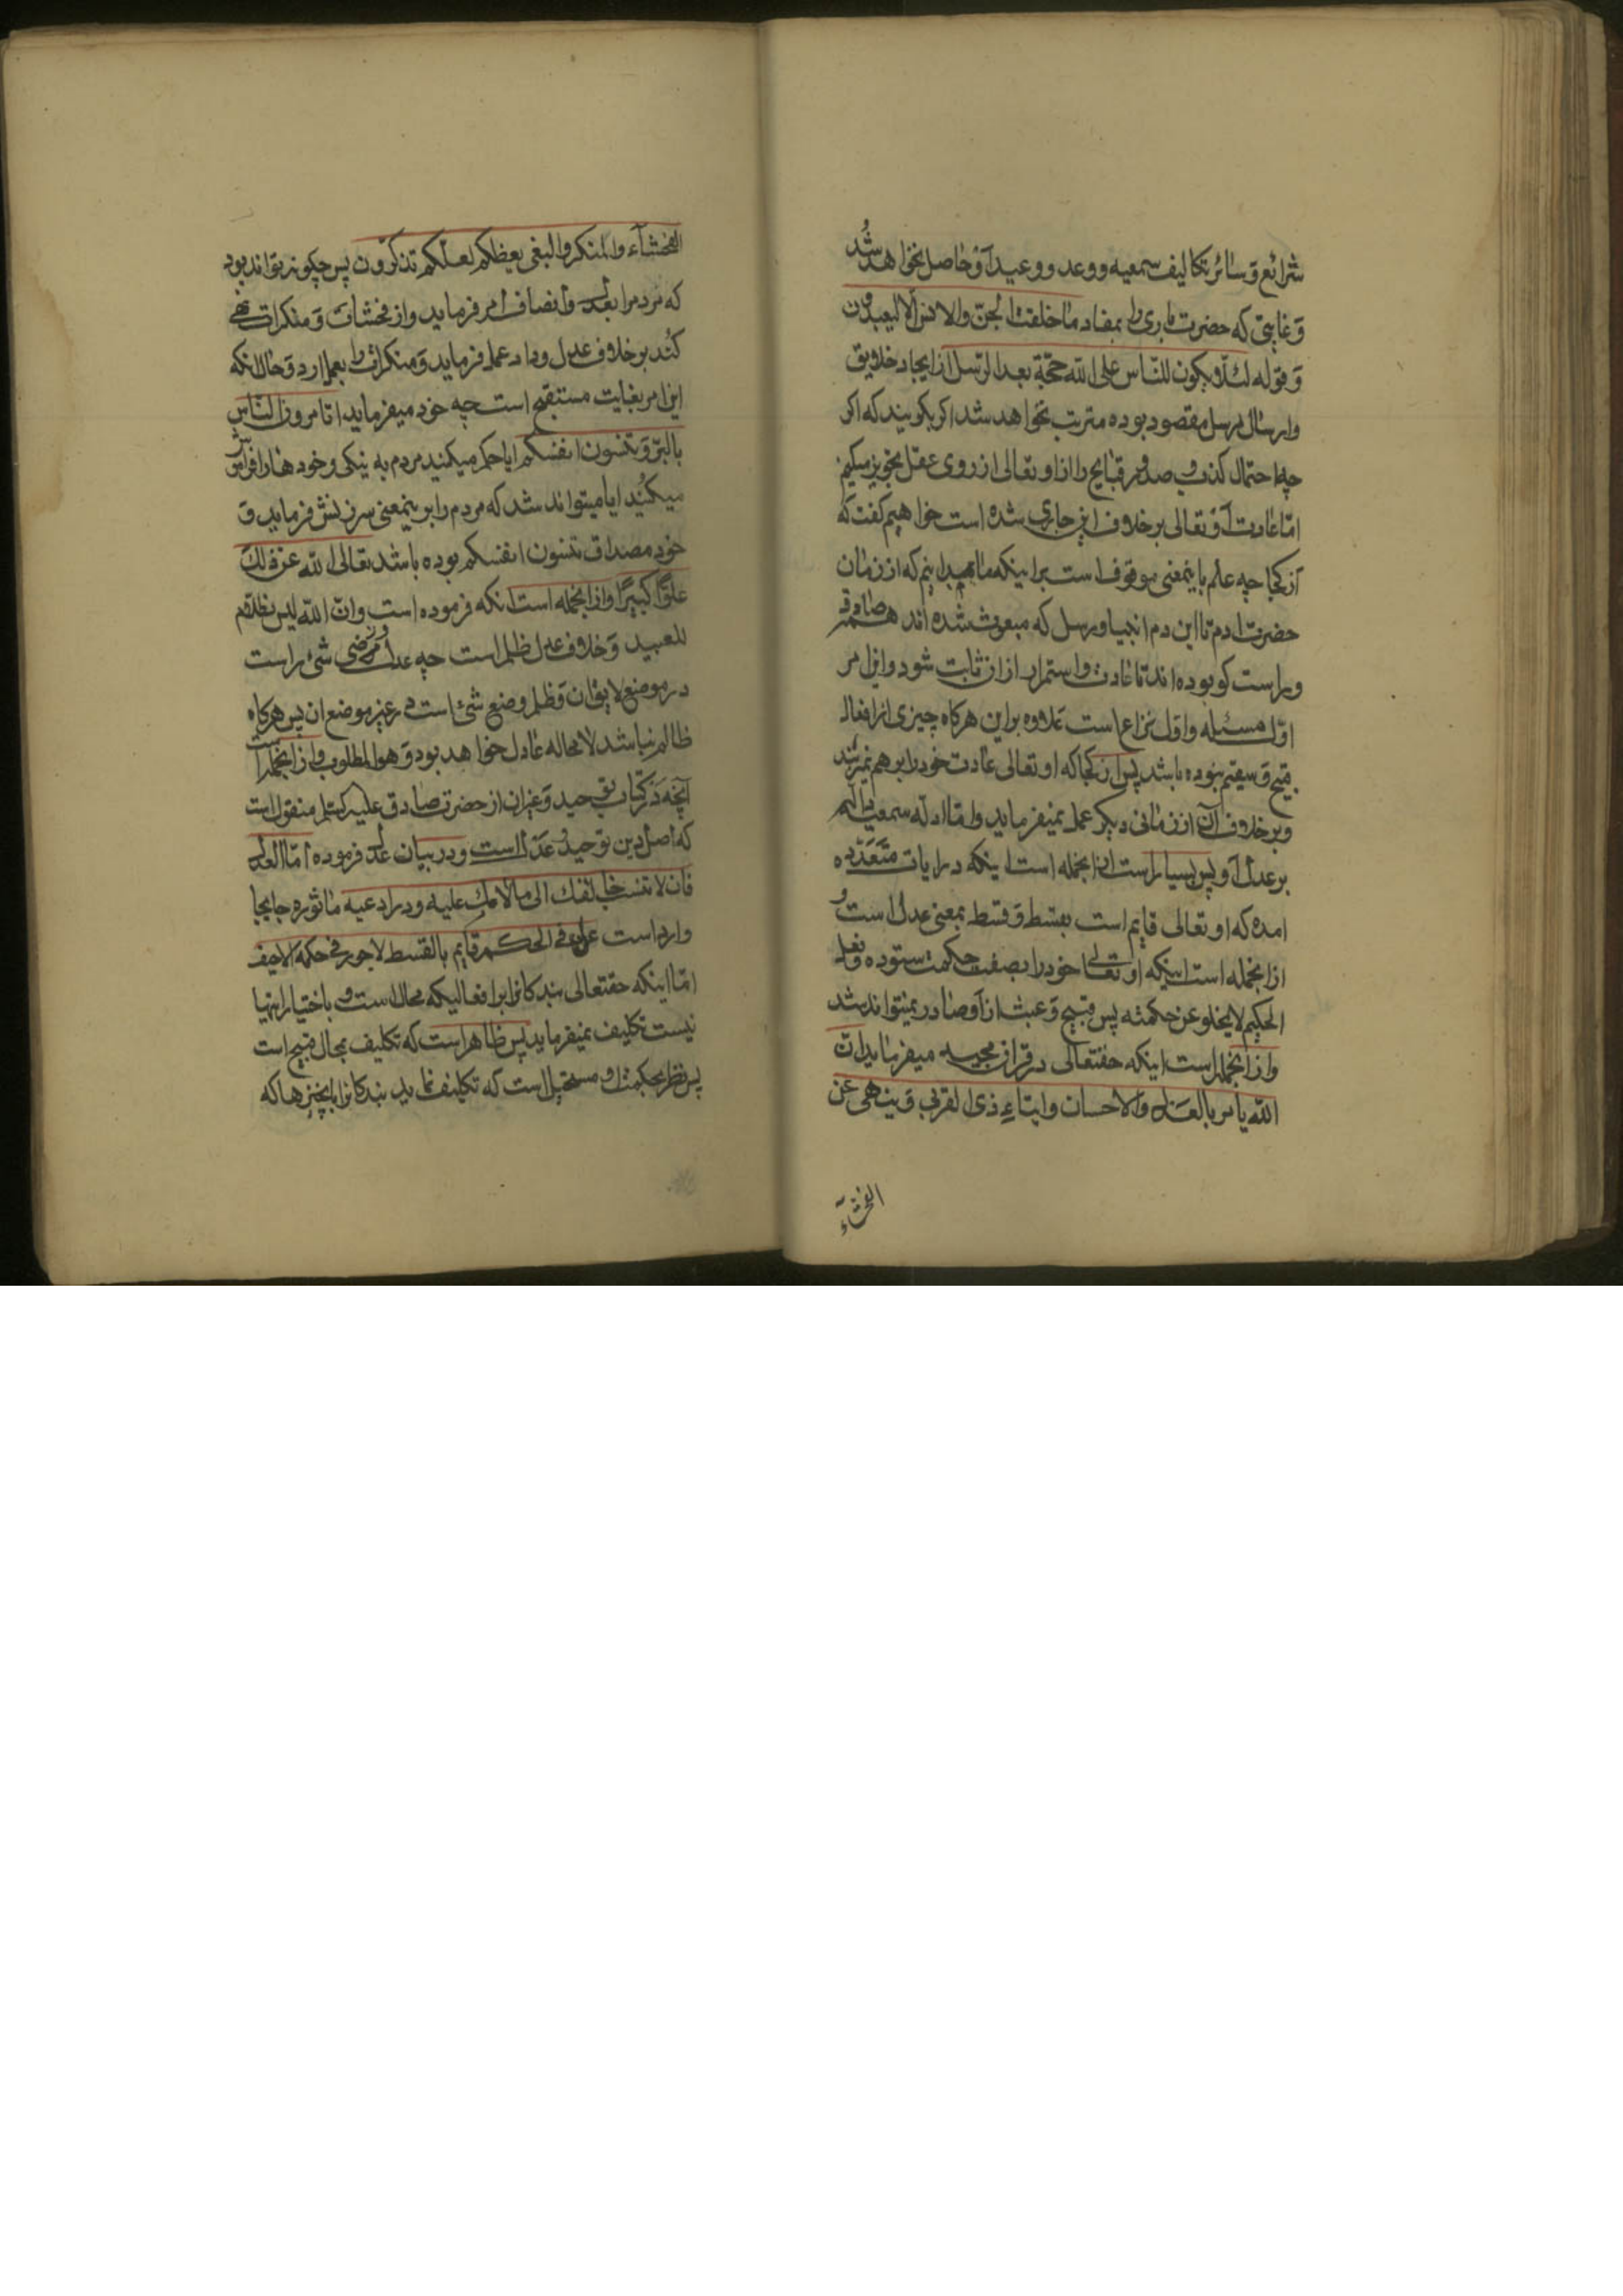 شرائع و سائر تکالیف سمعیه و وعد و وعید او حاصل نخواهد شد
و غایتی که حضرت باری را بمفاد ما خلقت الجن والانس الا لیعبدون
و قوله لئلا یکون للناس علی الله حجة بعد الرسل از ایجاد خلایق
و ارسال رسل مقصود بوده مترتب نخواهد شد اکر بکویند که اکر
چه احتمال کذب و صدور قبایح را از او تعالی از روی عقل تجویز میکنیم
اما عادت او تعالی برخلاف این جاری شده است خواهیم کفت که
از کجا چه علم باینمعنی موقوف است براینکه ما بدانیم که از زمان
حضرت ادم تا این دم انبیا و رسل که مبعوث شده اند همه صادق
و راست کو بوده اند تا عادت و استمرار از ان ثابت شود و این امر
اول مسئله و اول نزاع است علاوه براین هرکاه چیزی از افعال
قبیح و سقیم نبوده باشد پس از کجا که او تعالی عادت خود را برهم نمیزند
و برخلاف آن از زمانی دیکر عمل نمیفرماید و اما ادله سمعیه
بر عدل او پس بسیار است ازانجمله است اینکه در ایات متعدده
امده که او تعالی قایم است بقسط و قسط بمعنی عدل است و
ازانجمله است اینکه او تعالی خود را بصفت حکمت ستوده و فعل
الحکیم لا یخلو عن حکمته پس قبیح و عبث از او صادر نمیتواند شد
و ازانجمله است اینکه حقتعالی در قران مجید میفرماید ان
الله یامر بالعدل والاحسان وایتاء ذی القربی و ینهی عن
الفحشاء
الفحشآء والمنکر والبغی یعظکم لعلکم تذکرون پس چکونه تواند بود
که مردم را بعدل و انصاف امر فرماید و از فحشات و منکرات نهی
کند برخلاف عدل و داد عمل فرماید و منکرات را بعمل ارد و حال انکه
این امر بغایت مستقبح است چه خود میفرماید اتامرون الناس
بالبر و تنسون انفسکم ایا حکم میکنید مردم به نیکی و خودها را فراموش
میکنید ایا میتواند شد که مردم را بر اینمعنی سرزنش فرماید و
خود مصداق تنسون انفسکم بوده باشد تعالی الله عن ذلک
علوا کبیرا و ازانجمله است انکه فرموده است و ان الله لیس بظلام
للعبید و خلاف عدل ظلم است چه عدل وضع شئ است
در موضع لایق ان و ظلم وضع شئ است در غیر موضع ان پس هرکاه
ظالم نباشد لا محاله عادل خواهد بود و هو المطلوب و ازانجمله است
آنچه در کتاب توحید و غیران از حضرت صادق علیه السلم منقول است
که اصل دین توحید و عدل است و در بیان عدل فرموده اما العدل
فان لا تنسب خالقک الی ما لامک علیه و در ادعیه ماثوره جابجا
وارد است عدل فی الحکم قایم بالقسط لا جور فی حکمه و لا حیف
اما اینکه حقتعالی بندکانرا بر افعالیکه محال است و باختیار اینها
نیست تکلیف نمیفرماید پس ظاهر است که تکلیف بمحال قبیح است
پس نظر بحکمت او مستحیل است که تکلیف نماید بندکانرا بچیزها که